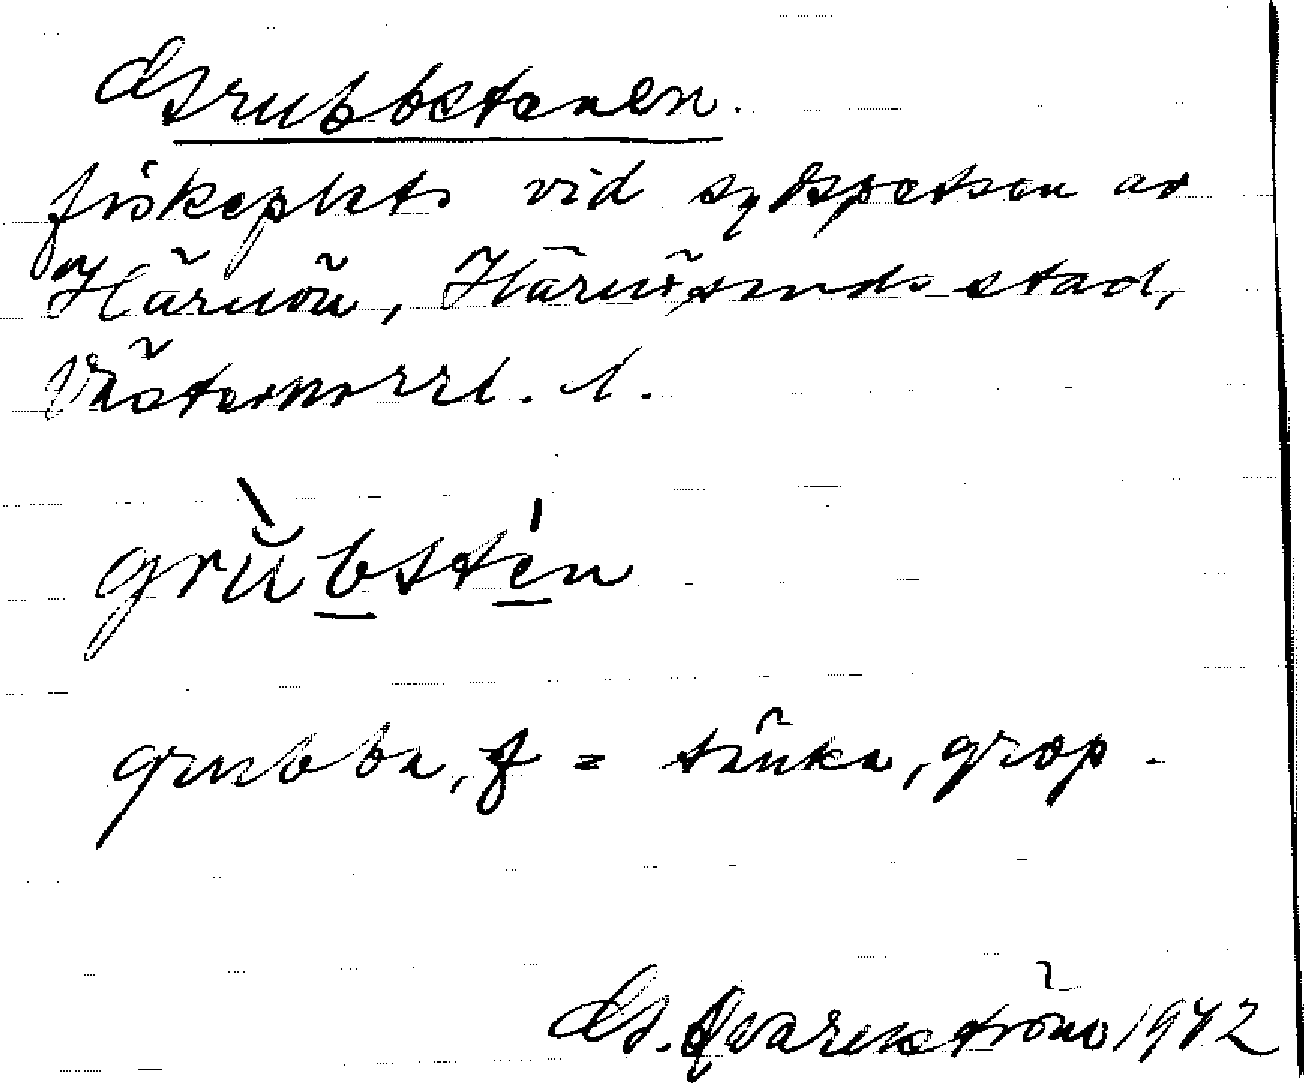 Grubbstenen.
fiskeplats vid sydspetsen av
Härnön, Härnösands stad,
Västernorrl. l.
grŭ̀bstén
grubba, f = sänka, grop.
G. Qvarnström 1942